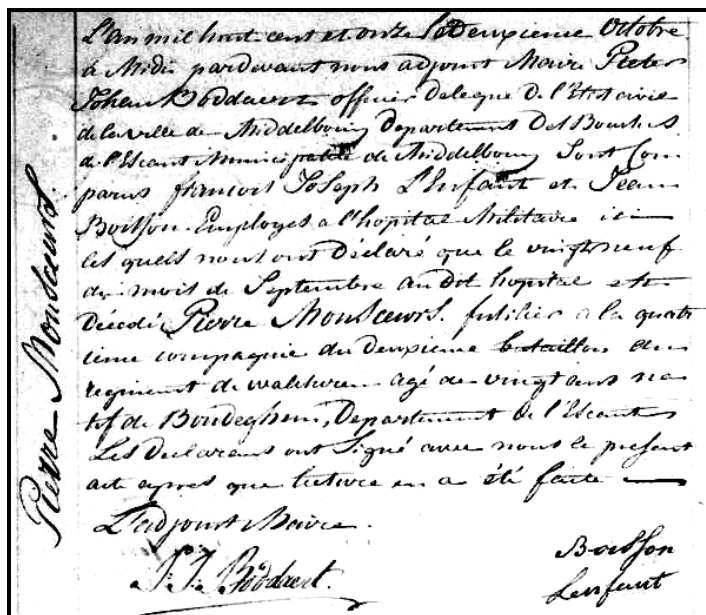 Pierre Monsœurs.
L'an mil huit cent et onze le Deuxieme Octobre
à Midi pardevant nous adjoint Maire Pieter
Johan Boddaert officier delegué de l'Etat civile
de la ville de Middelbourg Departement des Bouches
de l'Escaut Municipalité de Middelbourg Sont Com-
parus françois Joseph L'Enfant et Jean
Boisson Employes a l'hopital Militaire ici
les quels nous ont déclaré que le vingt neuf
du mois de Septembre au dit hopital est
décedé Pierre Monsœurs. fusilier a la quatr
ieme compagnie du deuxieme bataillon du
regiment de walcheren agé de vingt ans na-
tif de Boudeghem, Departement de l'Escaut
Les declarans ont Signé avec nous le present
act apres que lecture en a été faite
L'adjoint Maire.
J. J. Boddaert.
Boisson
Lenfant